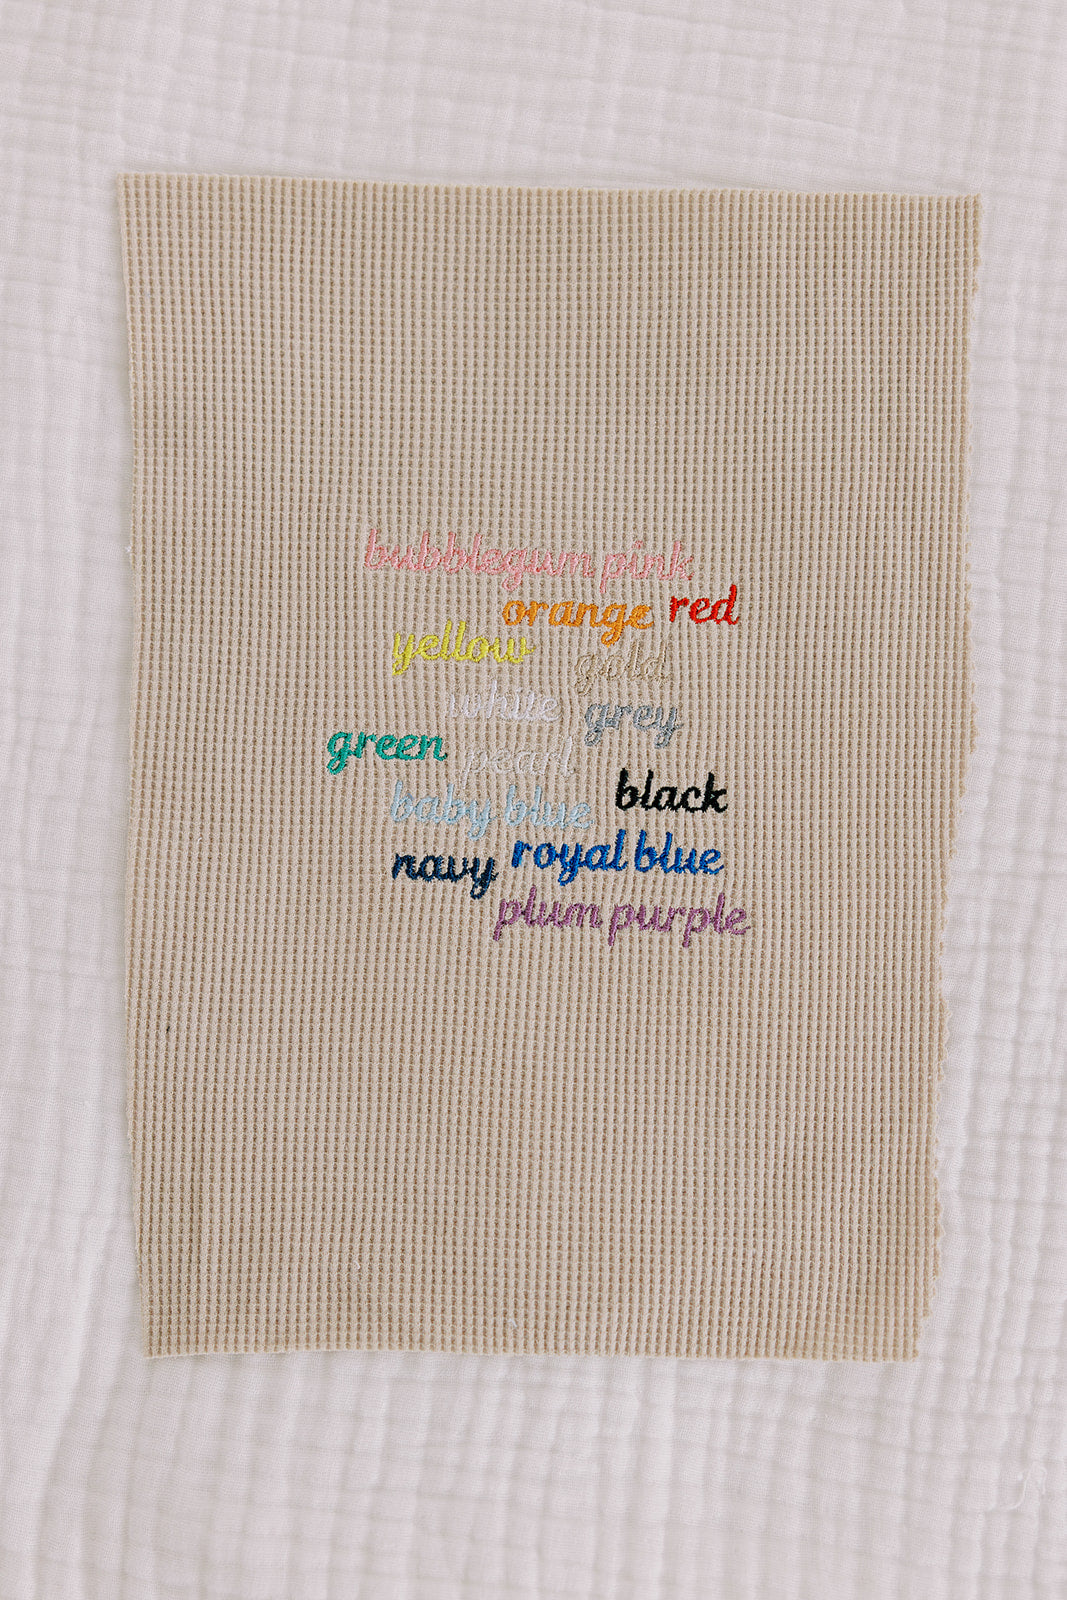 bubblegum pink
orange red
yellow gold
white grey
green pearl
baby blue black
navy royal blue
plum purple